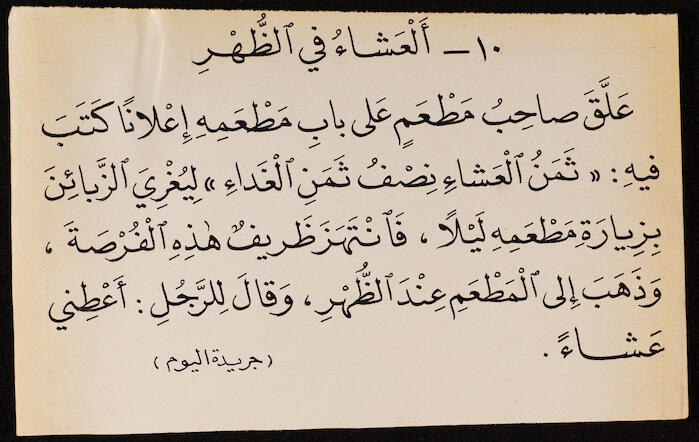 ١٠ – أَلْعَشاءُ في ٱلظُّهْرِ
عَلَّقَ صاحِبُ مَطْعَمٍ عَلى بابِ مَطْعَمِهِ إِعْلانًا كَتَبَ
فيهِ : « ثَمَنُ ٱلْعَشاءِ نِصْفُ ثَمَنِ ٱلْغَداءِ » لِيُغْرِيَ ٱلزَّبائِنَ
بِزِيارَةِ مَطْعَمِهِ لَيْلًا ، فَٱنْتَهَزَ ظَريفٌ هٰذِهِ ٱلْفُرْصَةَ ،
وَذَهَبَ إِلى ٱلْمَطْعَمِ عِنْدَ ٱلظُّهْرِ ، وَقالَ لِلرَّجُلِ : أَعْطِني
عَشاءً .
( جريدة اليوم )